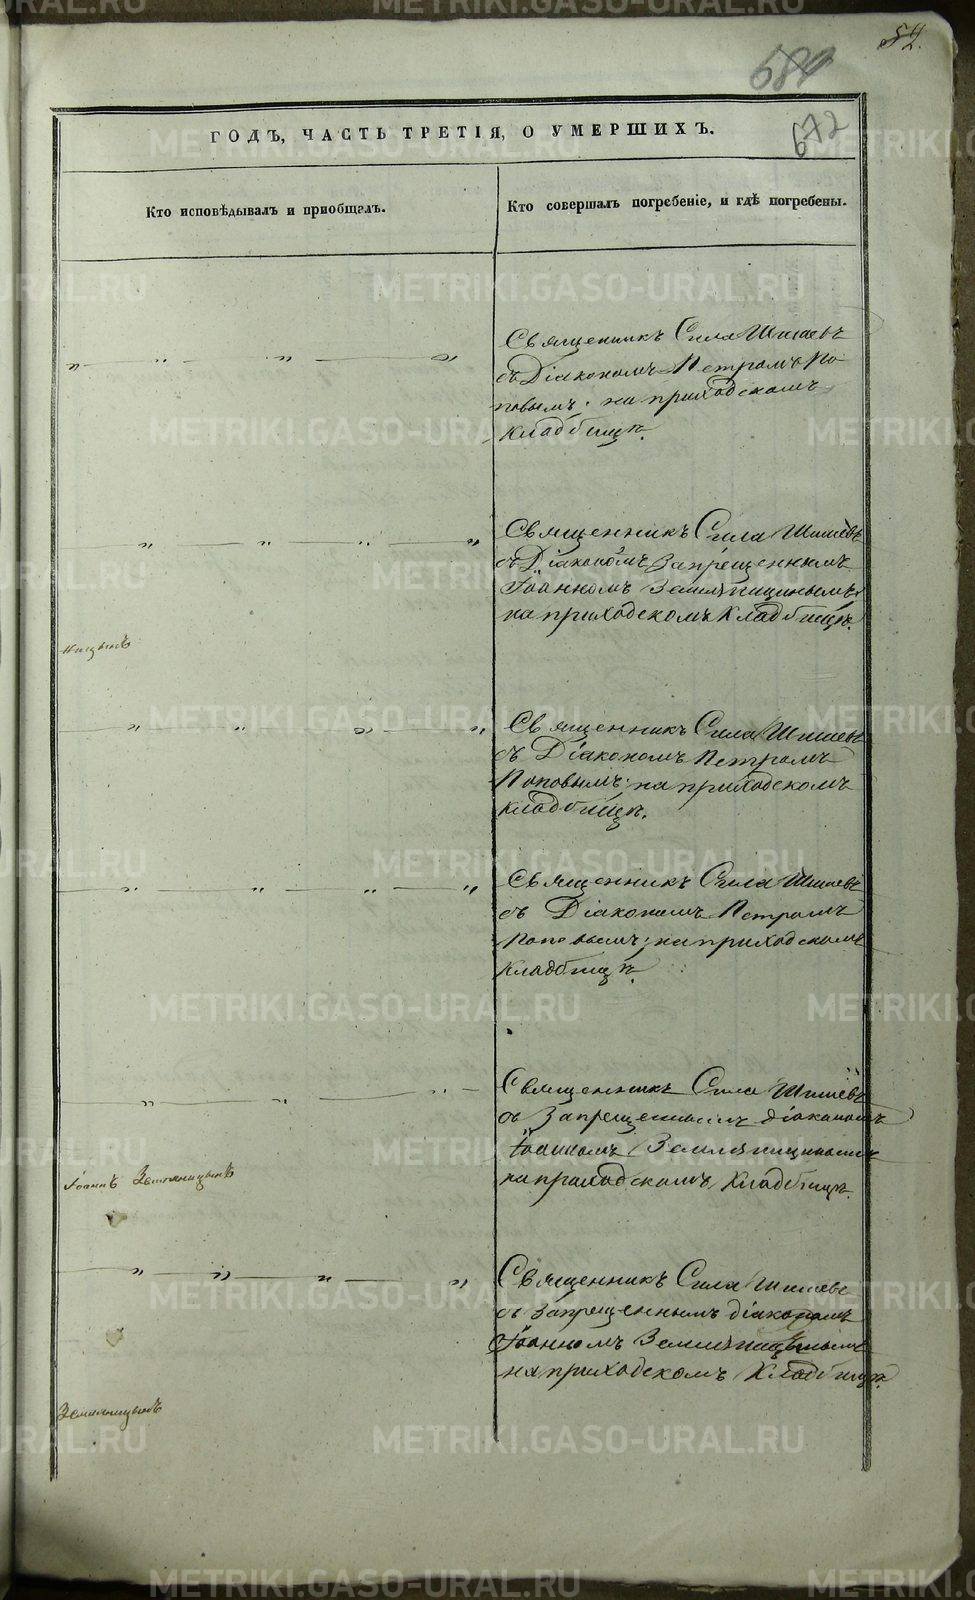 52.
680
672
ГОДЪ, ЧАСТЬ ТРЕТІЯ, О УМЕРШИХЪ.
Кто исповѣдывалъ и приобщалъ.
Кто совершалъ погребеніе, и гдѣ погребены.
Священникъ Сила Шишевъ
съ Діакономъ Петромъ По-
повымъ; на приходскомъ
кладбищѣ.
Священникъ Сила Шишевъ
съ Діакономъ Запрещеннымъ
Іоанномъ Земляницинымъ
на приходскомъ кладбищѣ.
Священникъ Сила Шишевъ
съ Діакономъ Петромъ
Поповымъ; на приходскомъ
кладбищѣ.
Священникъ Сила Шишевъ
съ Діакономъ Петромъ
Поповымъ; на приходскомъ
кладбищѣ.
Священникъ Сила Шишевъ
съ Запрещеннымъ діакономъ
Іоанномъ Земляницинымъ
на приходскомъ кладбищѣ.
Іоаннъ Земляницынъ
Священникъ Сила Шишевъ
съ Запрещеннымъ діакономъ
Іоанномъ Земляницынымъ
на приходскомъ кладбищѣ.
Земляницынъ
METRIKI.GASO-URAL.RU